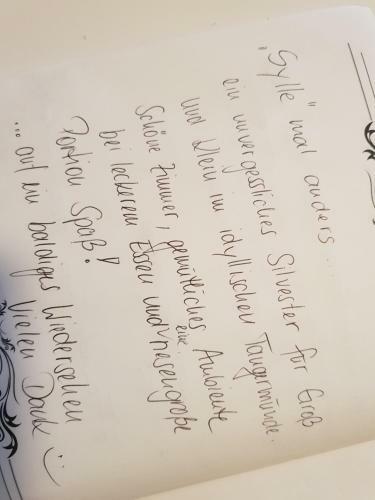 „Sylle" mal anders...
ein unvergessliches Silvester für Groß
und Klein im idyllischen Tangermünde.
Schöne Zimmer, gemütliches Ambiente
bei leckerem Essen und eine riesengroße
Portion Spaß!
... auf ein baldiges Wiedersehen
Vielen Dank :)